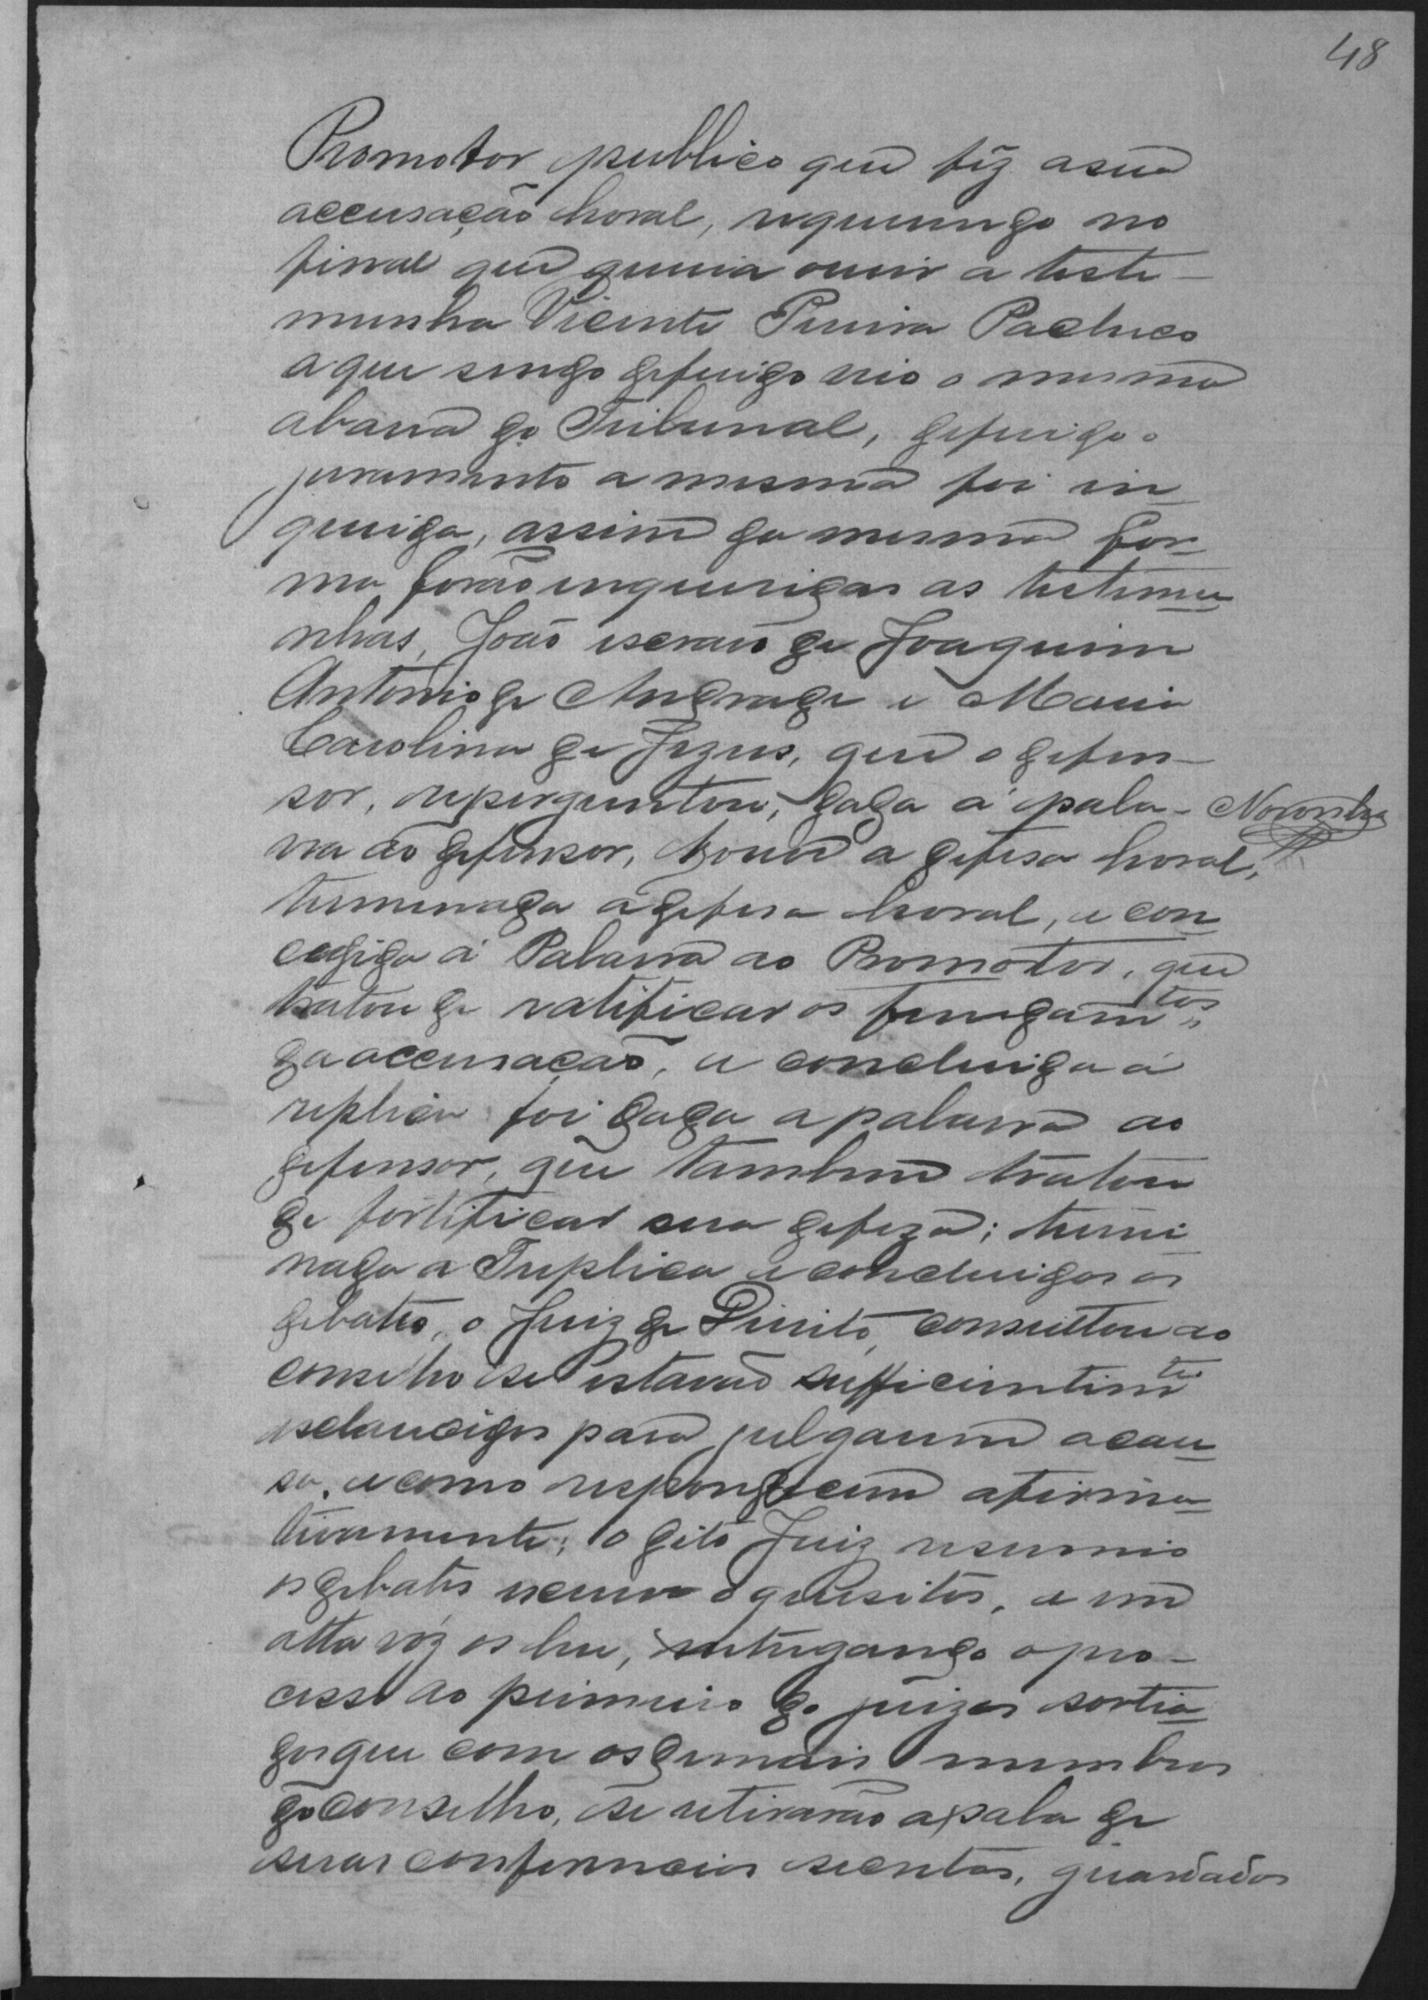 48
Promotor publico que fez a sua
accusação horal, requerendo no
final que queria ouvir a teste-
munha Vicente Pereira Pacheco
a que sendo deferido veio o mesmo
a barra do Tribunal, deferido o
juramento a mesma foi in
querida, assim da mesma for-
ma forão inqueridas as testemu
nhas, João escravo de Joaquim
Antonio de Andrade e Maria
Carolina de Jezus, que o defen-
sor, reperguntou, dada a pala-
vra ao defensor, houve a defesa horal,
Noronha
terminada a defesa horal, e con
cedida a Palavra ao Promotor, que
tratou de ratificar os fundam.tos
da accusação, e concluida a
replica foi dada a palavra ao
defensor, que tambem tratou
de fortificar sua defeza; termi
nada a Treplica e concluidos os
debates, o Juiz de Direito, consultou ao
conselho se estavão sufficientem.te
esclarecidos para julgarem a cau
sa, e como responderem afirma
tivamente; o dito Juiz resumio
os debates o quisitos, e em
alta voz os leu, entregando o pro-
cesso ao primeiro do juizes sortia
dos que com os demais membros
do conselho, se retirarão a sala de
suas conferencias secretas, guardados